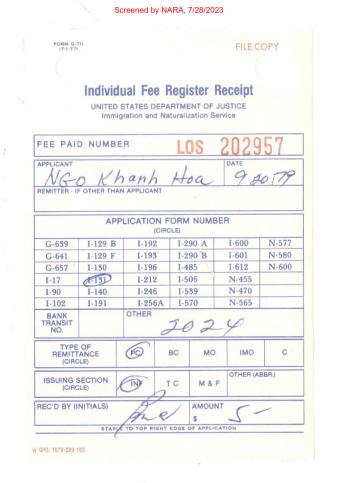 Screened by NARA, 7/28/2023
FORM G-711
(7-1-77)
FILE COPY
Individual Fee Register Receipt
UNITED STATES DEPARTMENT OF JUSTICE
Immigration and Naturalization Service
FEE PAID NUMBER LOS 202957
APPLICANT DATE
NGO Khanh Hoa 9 20 79
REMITTER - IF OTHER THAN APPLICANT
APPLICATION FORM NUMBER
(CIRCLE)
G-639 I-129 B I-192 I-290 A I-600 N-577
G-641 I-129 F I-193 I-290 B I-601 N-580
G-657 I-130 I-196 I-485 I-612 N-600
I-17 I-131 I-212 I-506 N-455
I-90 I-140 I-246 I-539 N-470
I-102 I-191 I-256A I-570 N-565
BANK TRANSIT NO. OTHER
2024
TYPE OF REMITTANCE (CIRCLE) PC BC MO IMO C
ISSUING SECTION (CIRCLE) INF T C M & F OTHER (ABBR.)
REC'D BY (INITIALS) AMOUNT
$ 5 -
STAPLE TO TOP RIGHT EDGE OF APPLICATION
GPO: 1978-289-185